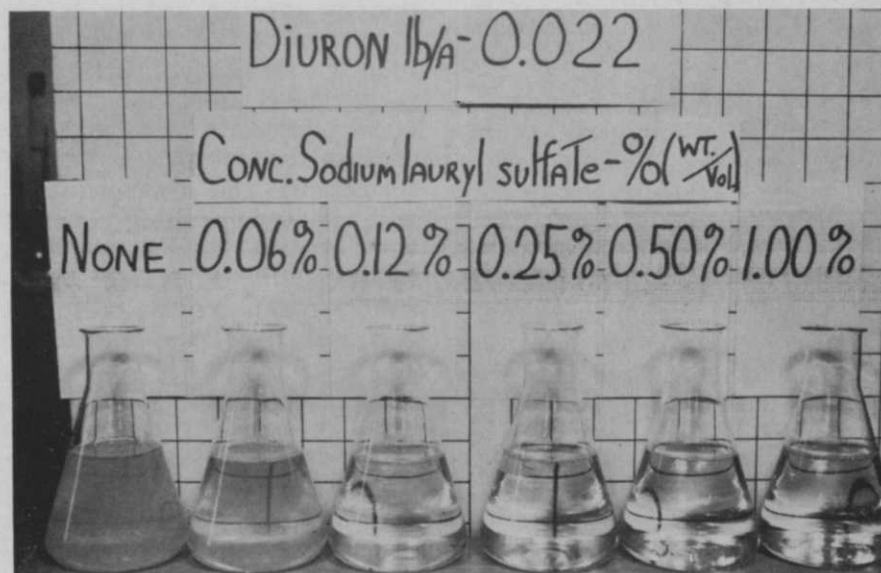 DIURON lb/A - 0.022
CONC. Sodium lauryl sulfate - % (WT./Vol.)
NONE 0.06% 0.12% 0.25% 0.50% 1.00%